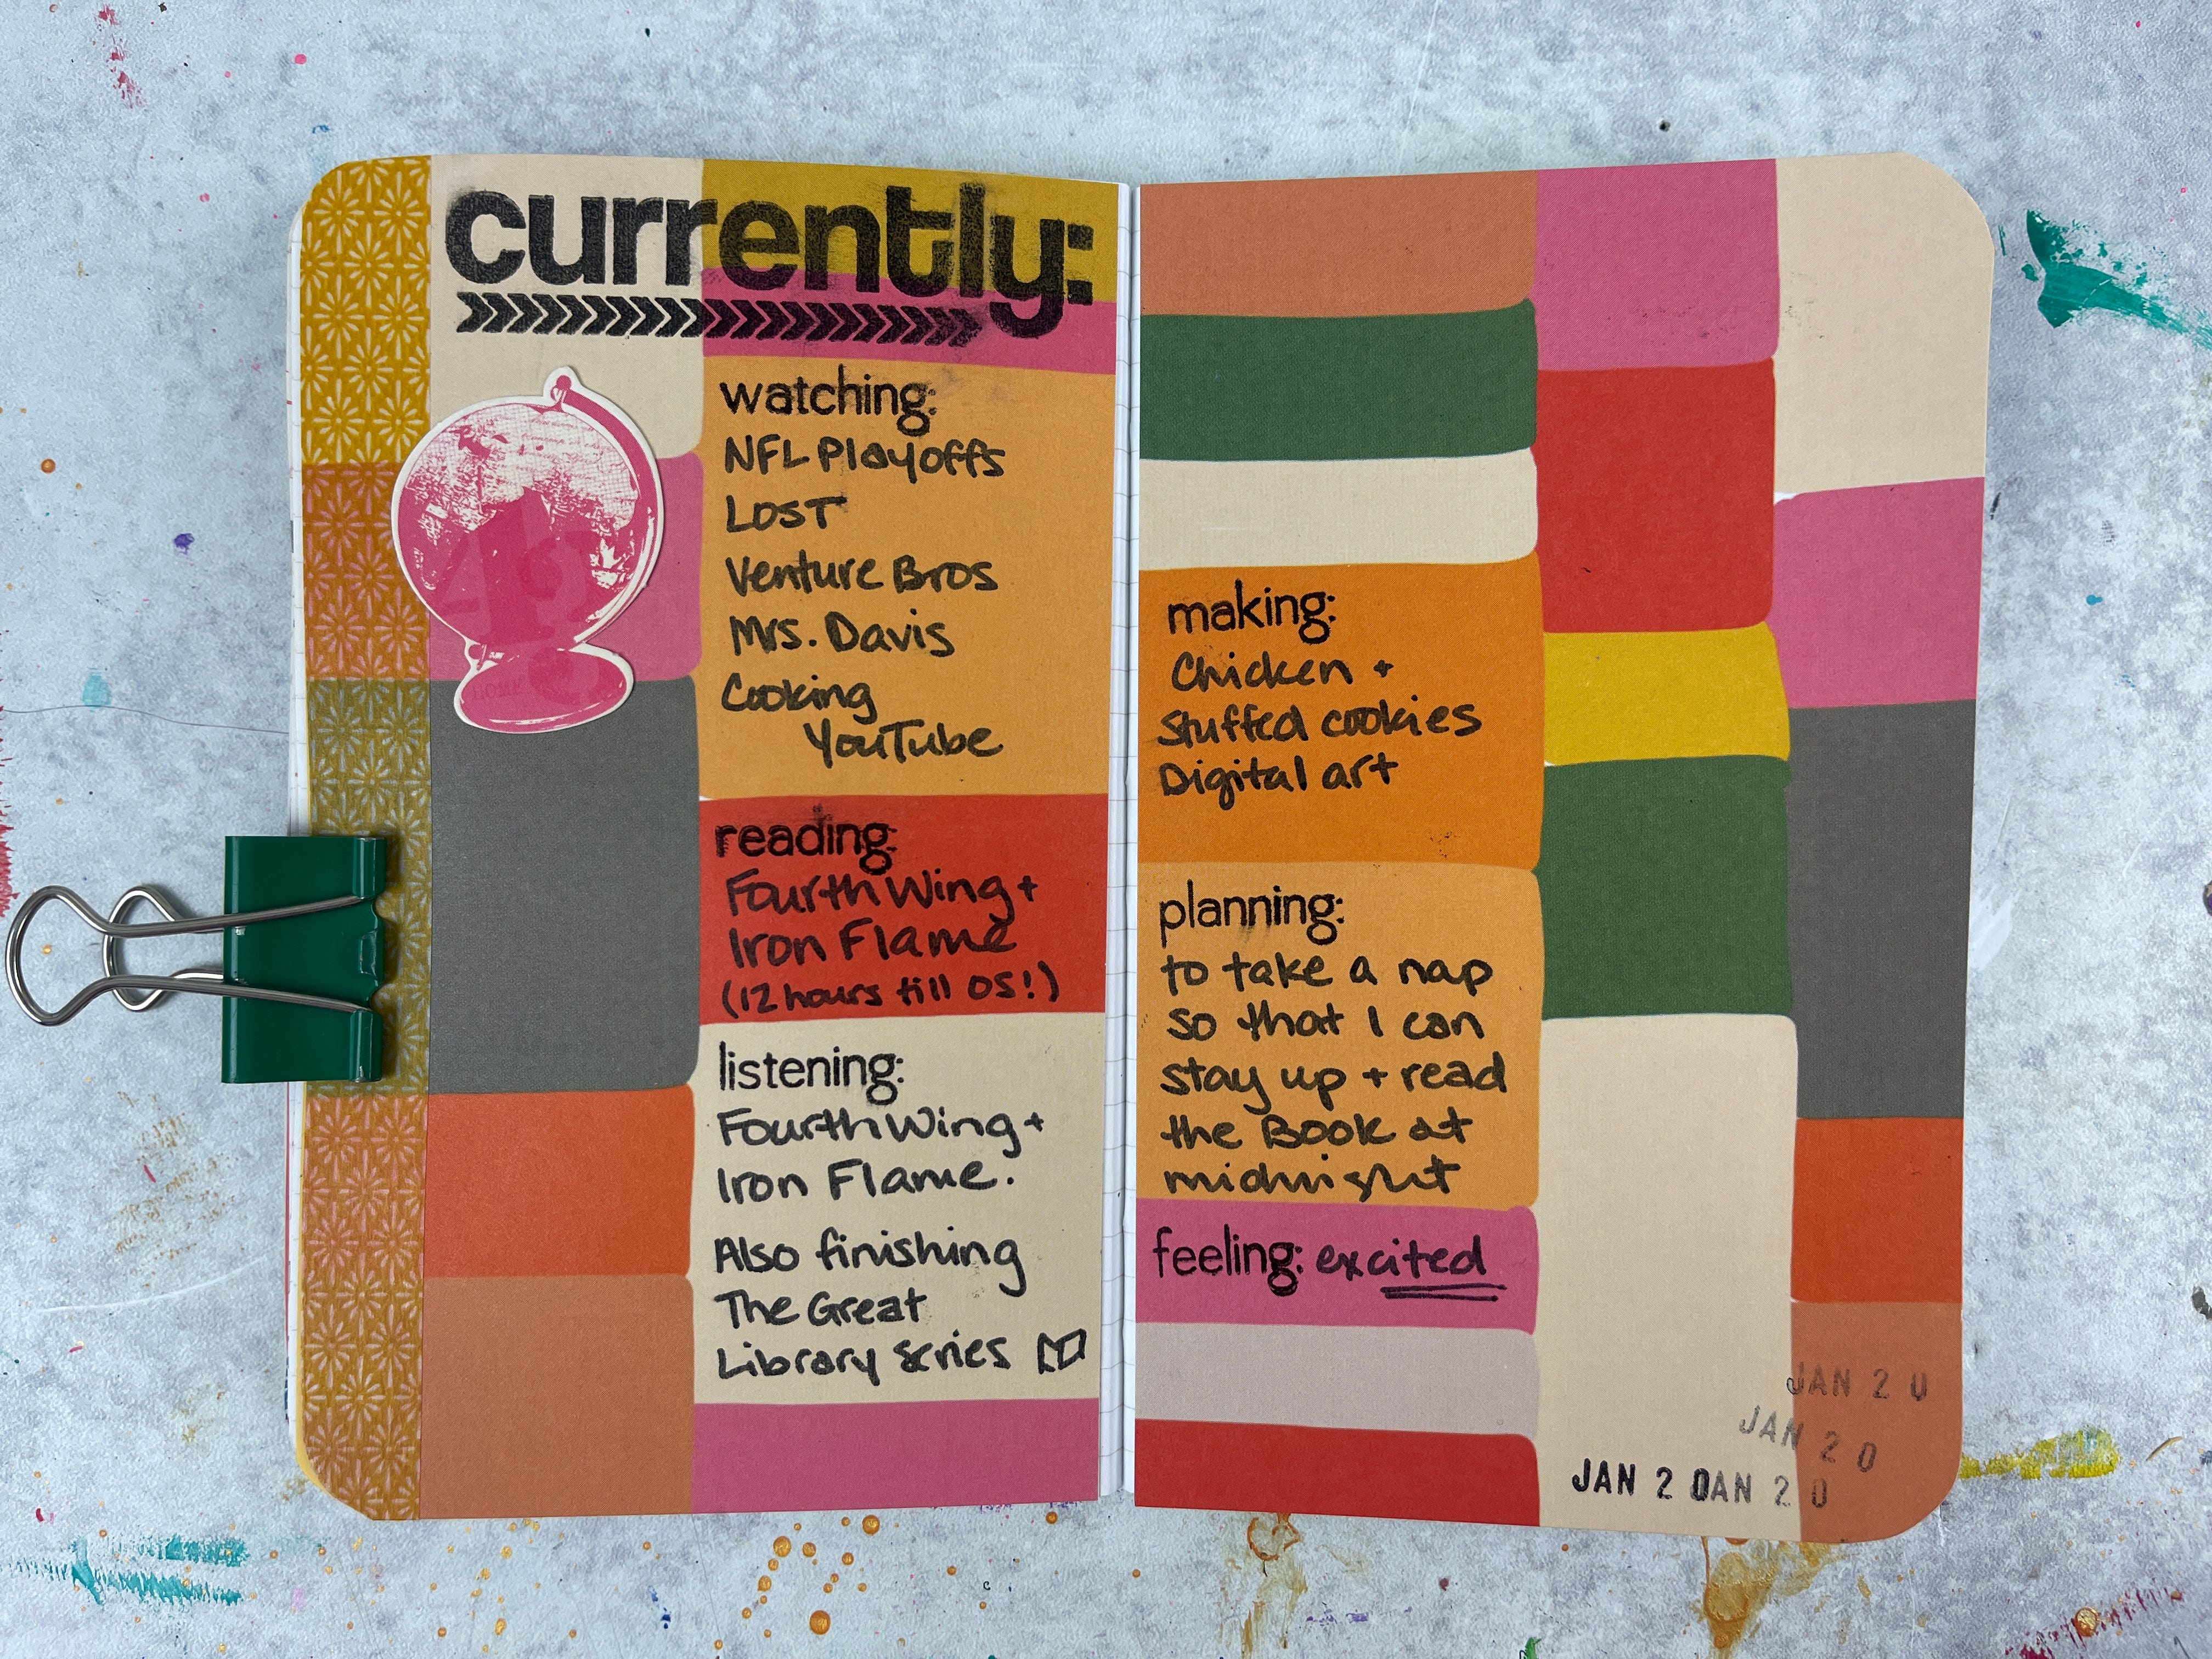 currently:
watching:
NFL Playoffs
LOST
Venture Bros
Mrs. Davis
Cooking
YouTube
reading:
Fourth Wing +
Iron Flame
(12 hours till OS!)
listening:
Fourth Wing +
Iron Flame.
Also finishing
The Great
Library series
HOME
making:
Chicken +
Stuffed cookies
Digital art
planning:
to take a nap
so that I can
stay up + read
the Book at
midnight
feeling: excited
JAN 20
JAN 20
JAN 20AN 20